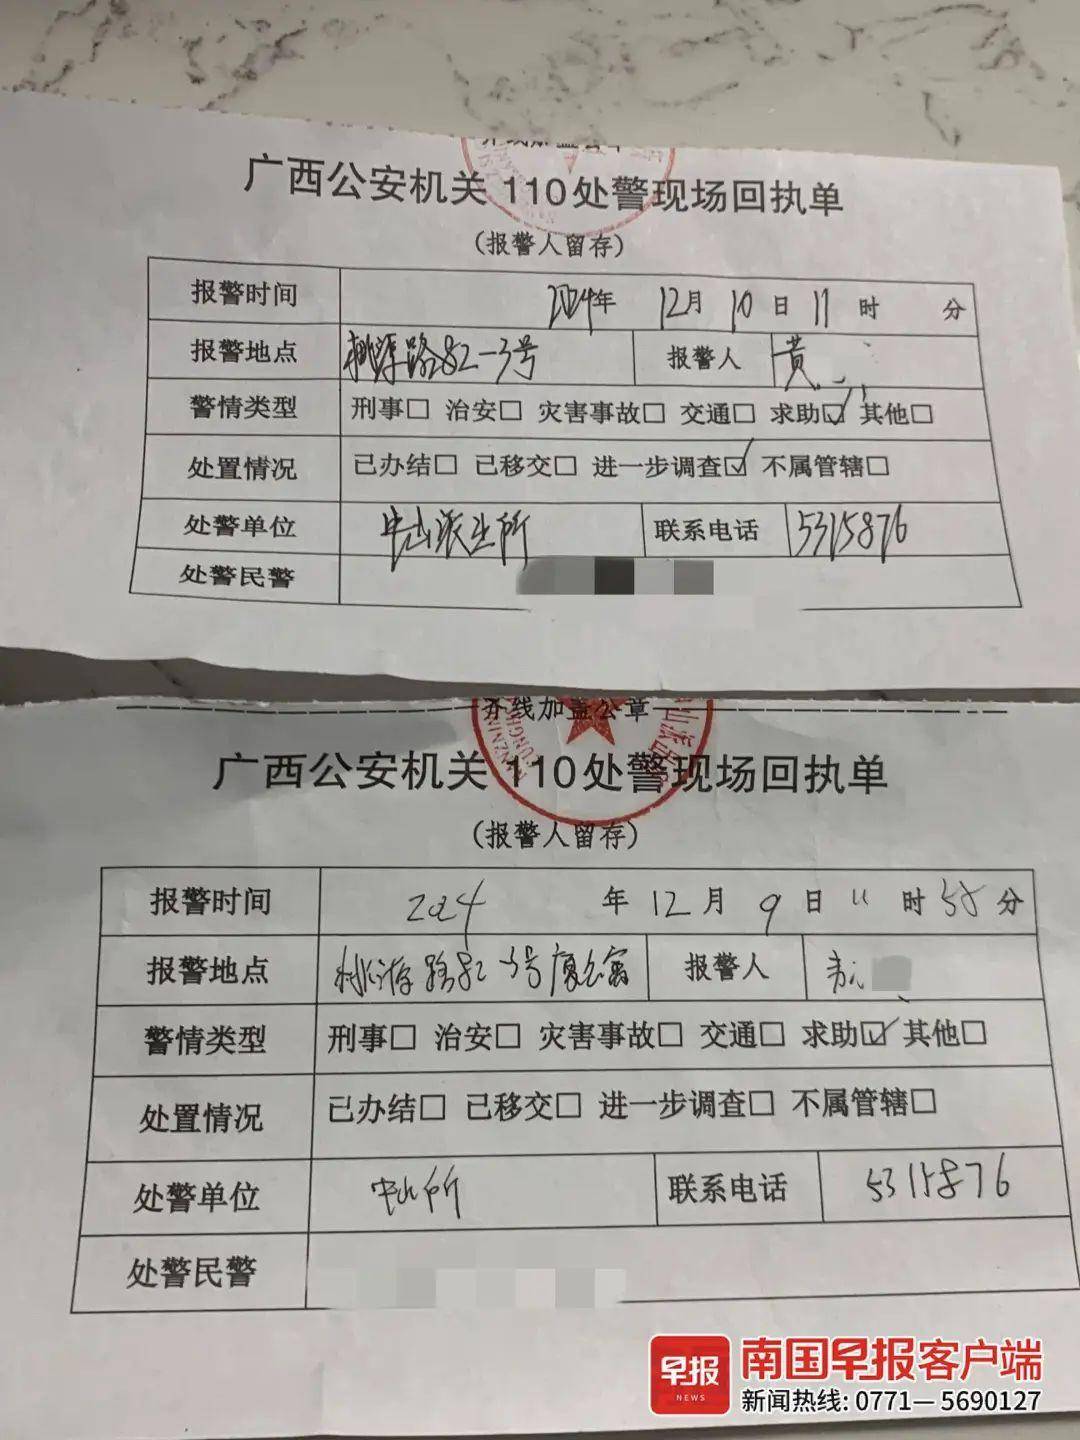 齐线加盖公章
广西公安机关 110 处警现场回执单
(报警人留存)
报警时间 2024年 12月 10日 11时 分
报警地点 桃源路82-3号 报警人 黄
警情类型 刑事□ 治安□ 灾害事故□ 交通□ 求助☑ 其他□
处置情况 已办结□ 已移交□ 进一步调查☑ 不属管辖□
处警单位 中山派出所 联系电话 5315876
处警民警
齐线加盖公章
广西公安机关 110 处警现场回执单
(报警人留存)
报警时间 2024 年 12月 9日 11时 分
报警地点 桃源路82 3号 报警人 韦
警情类型 刑事□ 治安□ 灾害事故□ 交通□ 求助☑ 其他□
处置情况 已办结□ 已移交□ 进一步调查□ 不属管辖□
处警单位 中山所 联系电话 5315876
处警民警
早报 南国早报客户端
NEWS 新闻热线: 0771— 5690127